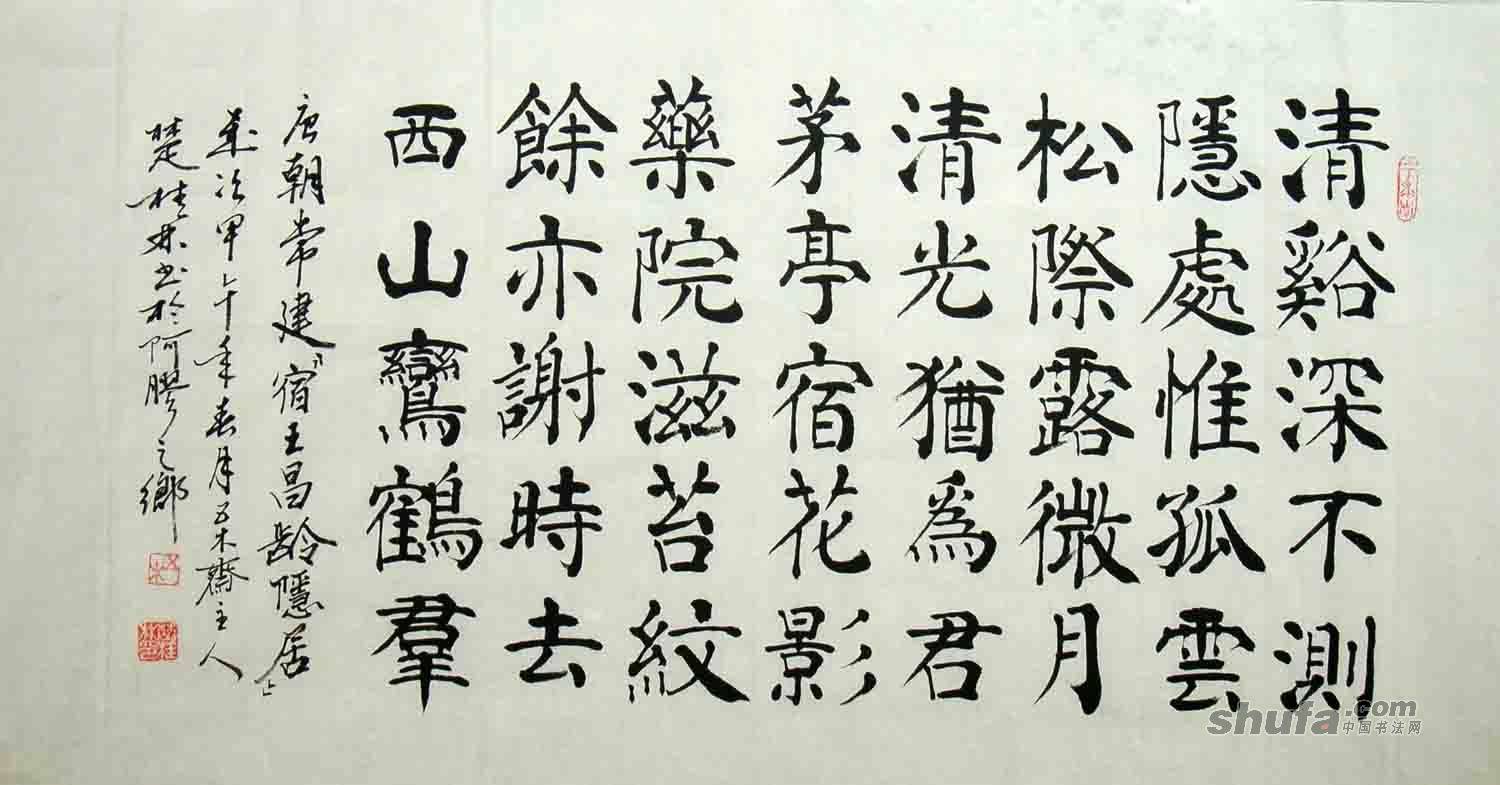 清谿深不測
隱處惟孤雲
松際露微月
清光猶爲君
茅亭宿花影
藥院滋苔紋
餘亦謝時去
西山鸞鶴羣
唐朝常建『宿王昌齡隱居』
歲次甲午年春月五木齋主人
楚桂林书於阿膠之鄉
shufa.com
中国书法网